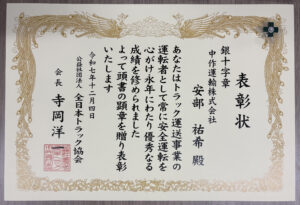 表彰状
銀十字章
中作運輸株式会社
安部 祐希 殿
あなたはトラック運送事業の
運転者として常に安全運転を
心がけ永年にわたり優秀なる
成績を修められました
よって頭書の顕章を贈り表彰
いたします
令和七年十二月四日
公益社団法人 全日本トラック協会
会長 寺岡洋一